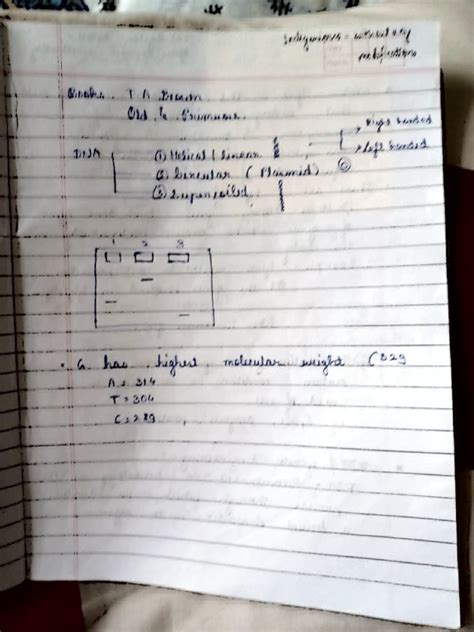 Isoschizomers =
Books. T A Brown
Old & Primrose.
→ Right handed
DNA (1) Helical / linear → left handed
(2) Circular (Plasmid)
(3) Supercoiled
1 2 3
• G has highest molecular weight (329
A = 314
T = 304
C = 289